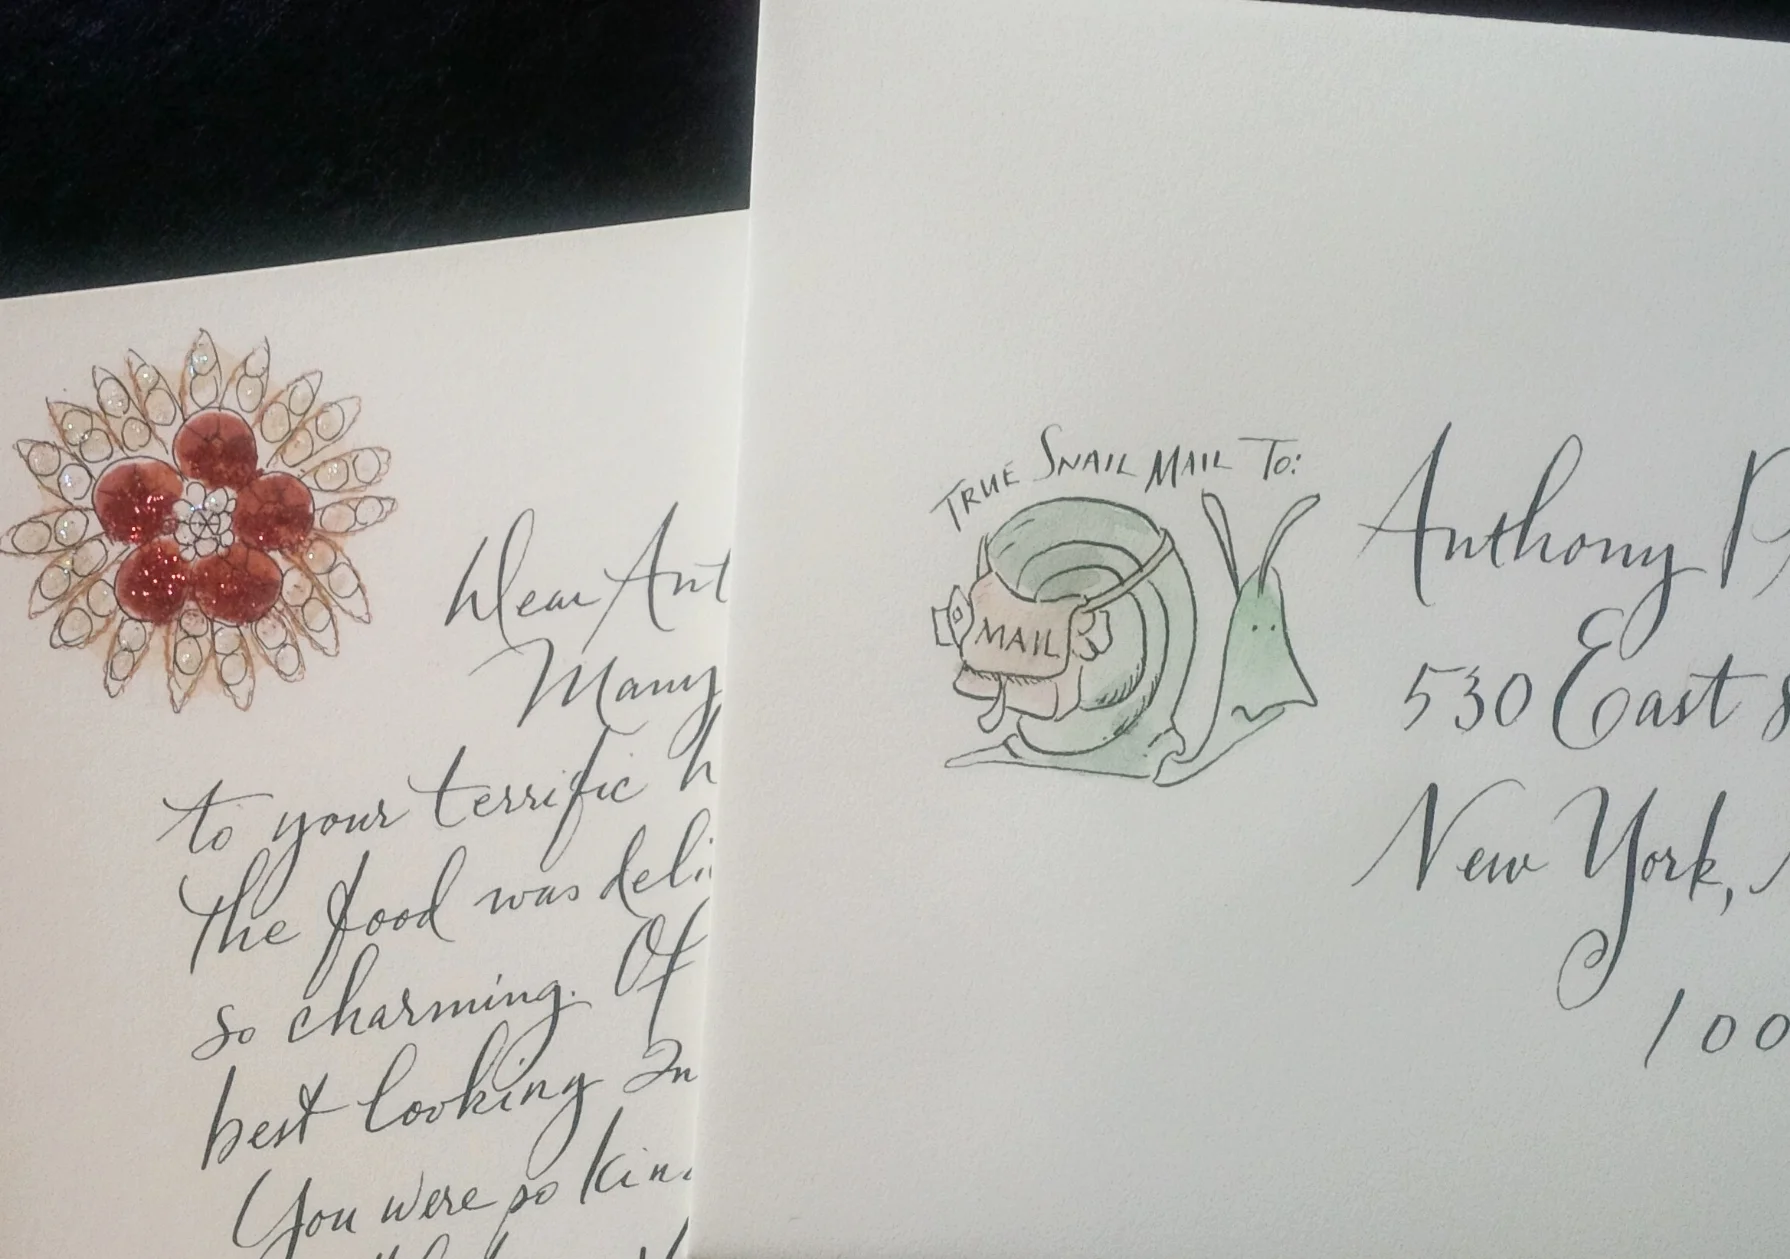 Dear Ant
Many
to your terrific h
The food was deli
so charming. Of
best looking
You were so kin
TRUE SNAIL MAIL TO:
MAIL
Anthony P
530 East 8
New York, N
100